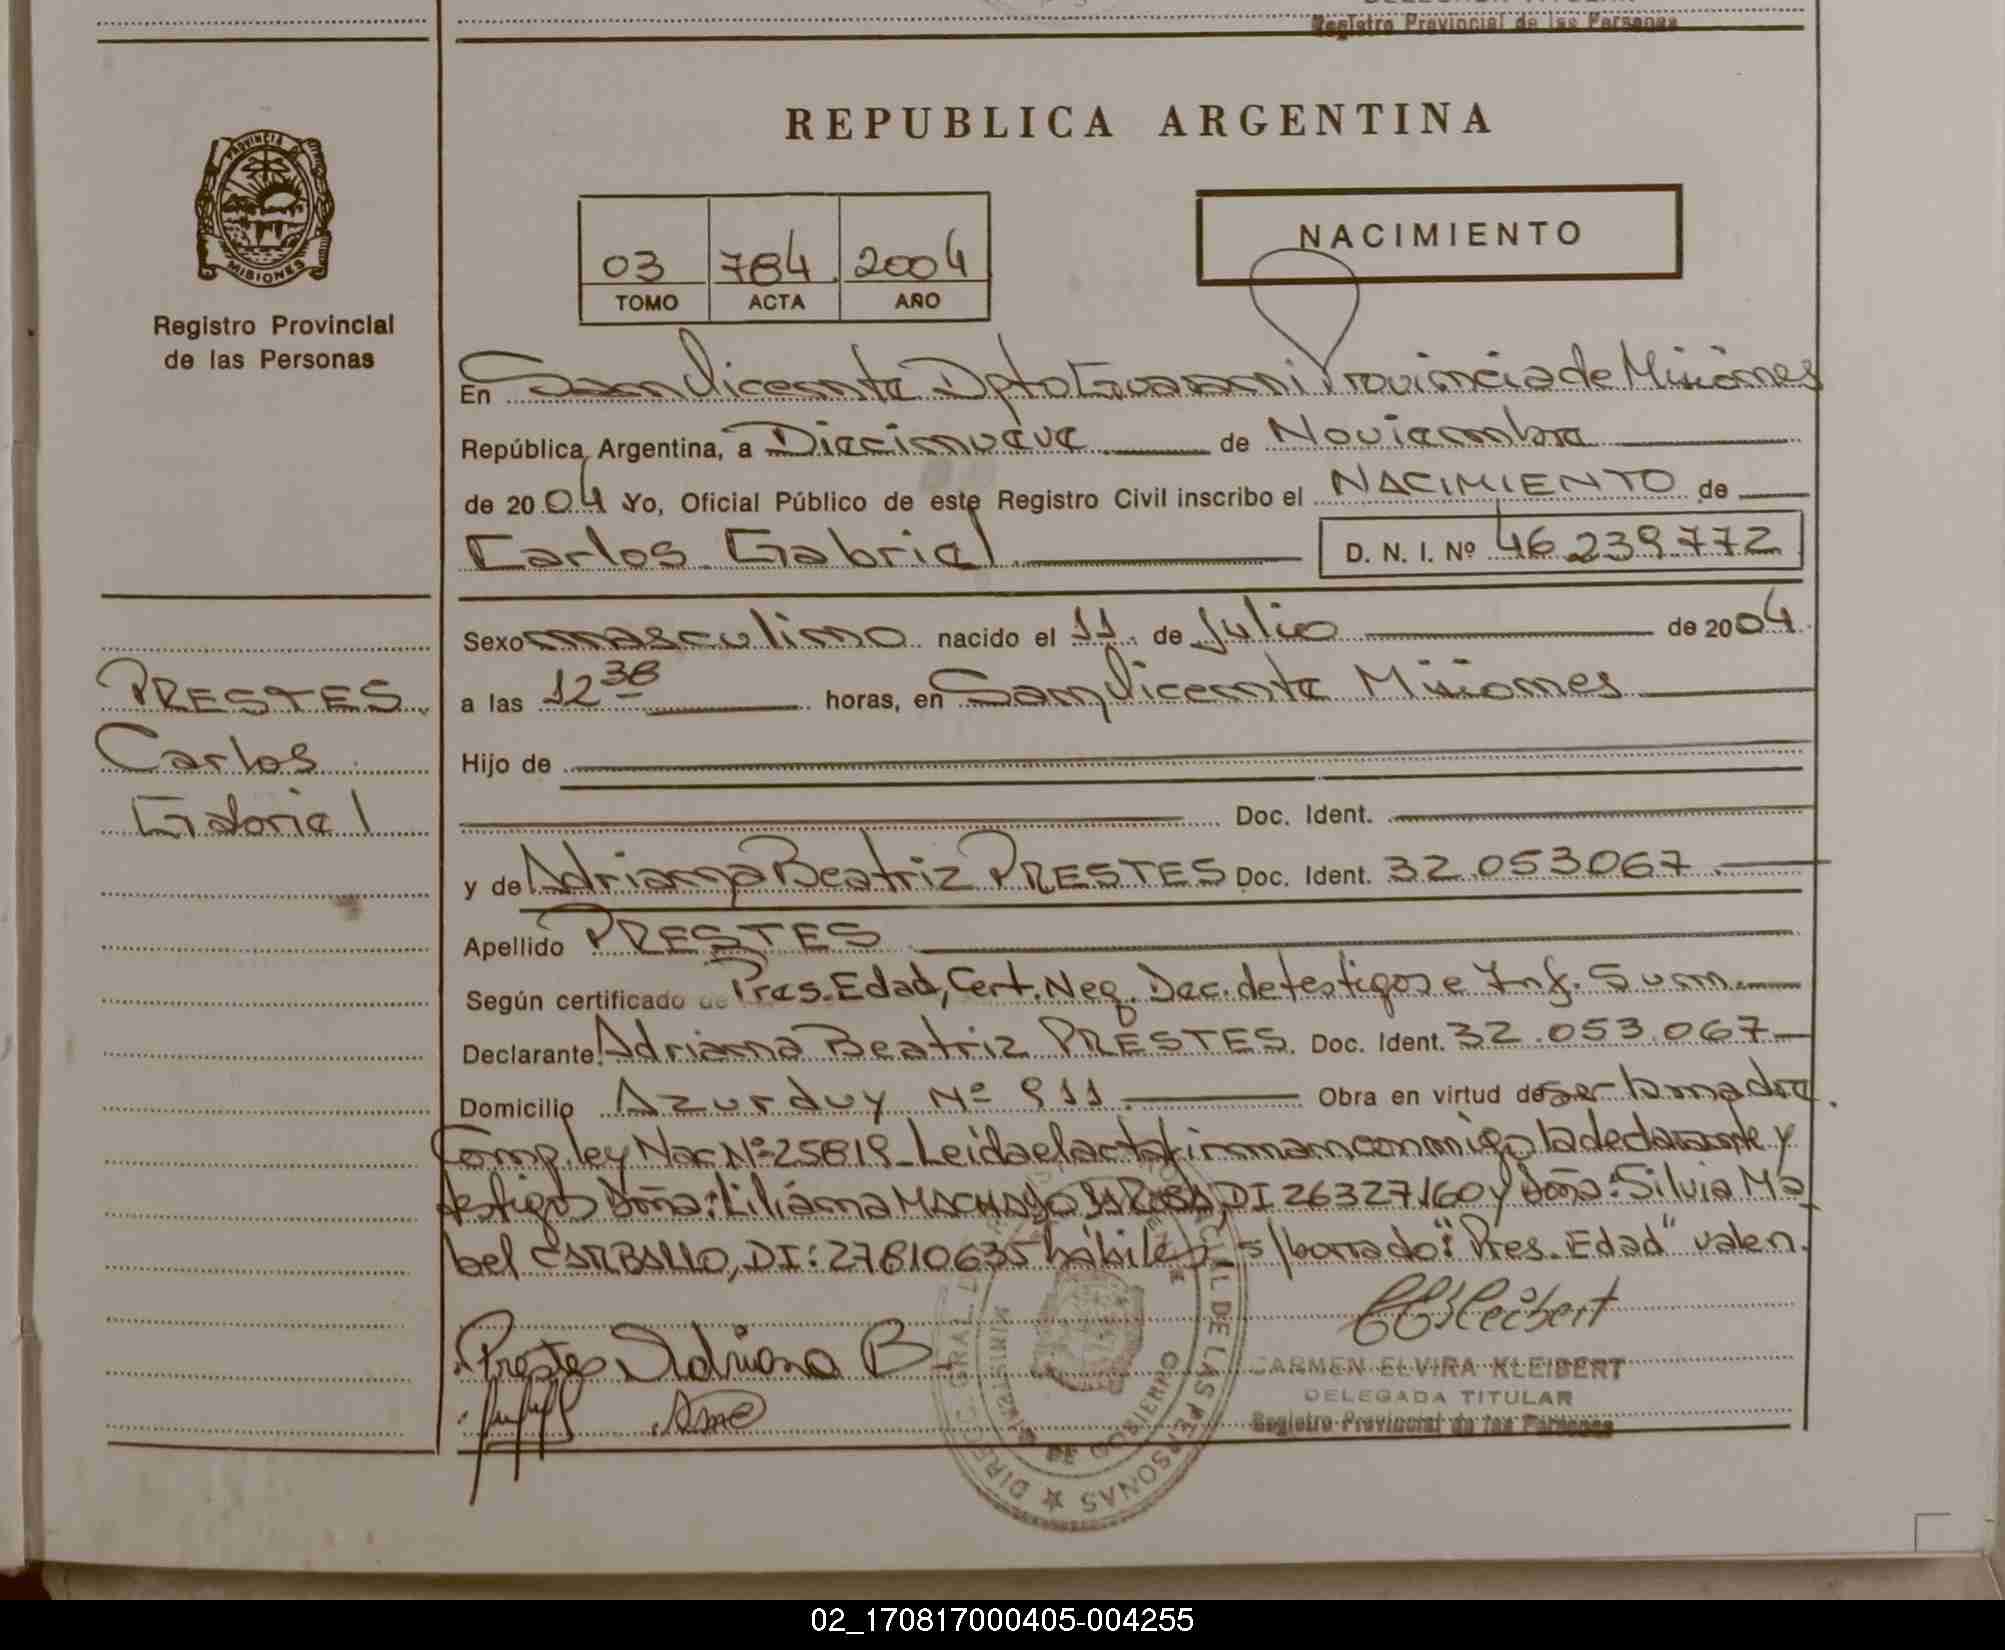 Registro Provincial de las Personas
REPUBLICA ARGENTINA
PROVINCIA DE
MISIONES
Registro Provincial
de las Personas
03 784 2004
TOMO ACTA AÑO
NACIMIENTO
En San Vicente Dpto Guarani Provincia de Misiones
República Argentina, a Diecinueve de Noviembre
de 2004 Yo, Oficial Público de este Registro Civil inscribo el NACIMIENTO de
Carlos Gabriel D. N. I. Nº 46.239.772
Sexo masculino nacido el 11 de Julio de 2004
a las 12 38 horas, en San Vicente Misiones
PRESTES
Carlos
Gabriel
Hijo de
Doc. Ident.
y de Adriana Beatriz PRESTES Doc. Ident. 32.053067
Apellido PRESTES
Según certificado de Pres. Edad, Cert. Neg. Dec. de testigos e Inf. Sum.
Declarante Adriana Beatriz PRESTES Doc. Ident. 32.053.067
Domicilio Azurduy Nº 911 Obra en virtud de ser la madre
Comp. ley Nac Nº 25819_ Leida el acta firman conmigo la declarante y
testigos Doña: Liliana MACHADO DI 26327160 y Doña: Silvia Ma
bel CARBALLO, DI: 27810635 hábiles_ s/borrado: "Pres. Edad" valen.
Prestes Adriana B
CARMEN ELVIRA KLEIBERT
DELEGADA TITULAR
Registro Provincial de las Personas
DIREC. GRAL. DEL REGISTRO CIVIL DE LAS PERSONAS
MINISTERIO DE GOBIERNO
02_170817000405-004255